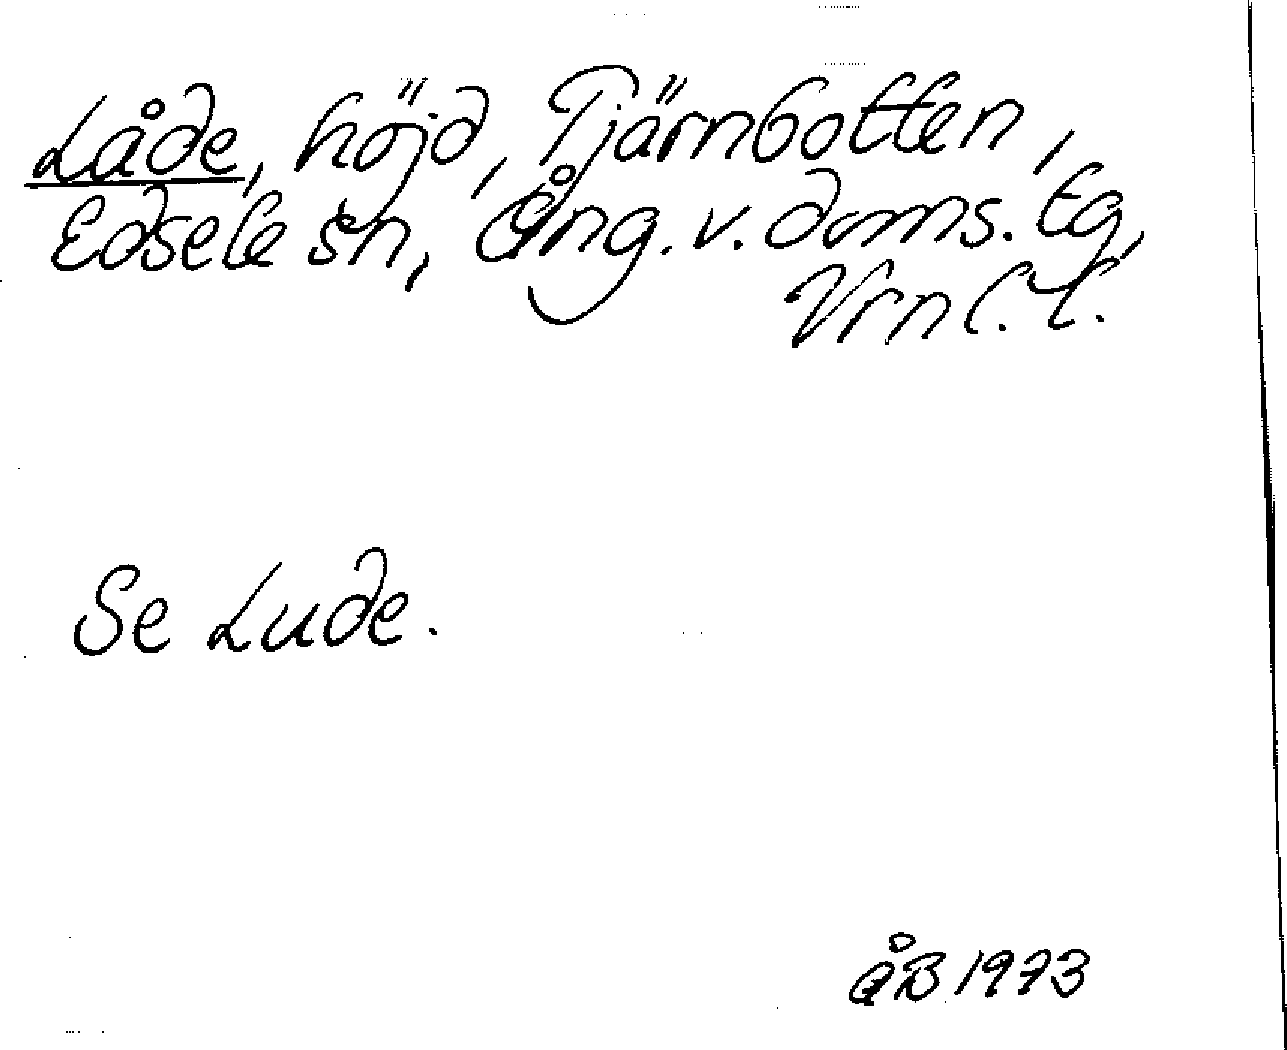 Låde, höjd, Tjärnbotten,
Edsele sn, Ång. v. doms. tg,
Vrnl. l.
Se Lude.
ÅB 1973